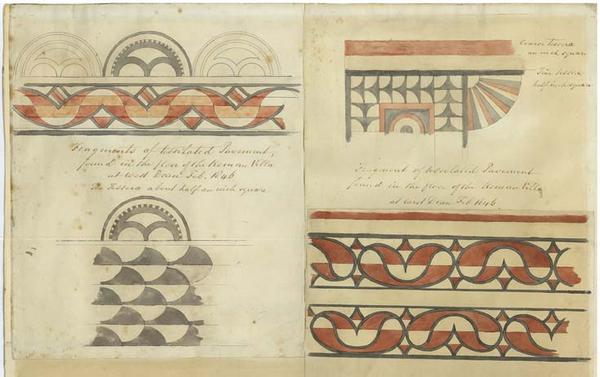 Fragments of tesselated Pavement,
found in the floor of the Roman Villa
at West Dean Feb. 1846
The Tessera about half an inch square
Coarse Tessera
an inch square
Fine tessera
half inch square
Fragment of tesselated Pavement
found in the floor of the Roman Villa
at West Dean Feb 1846